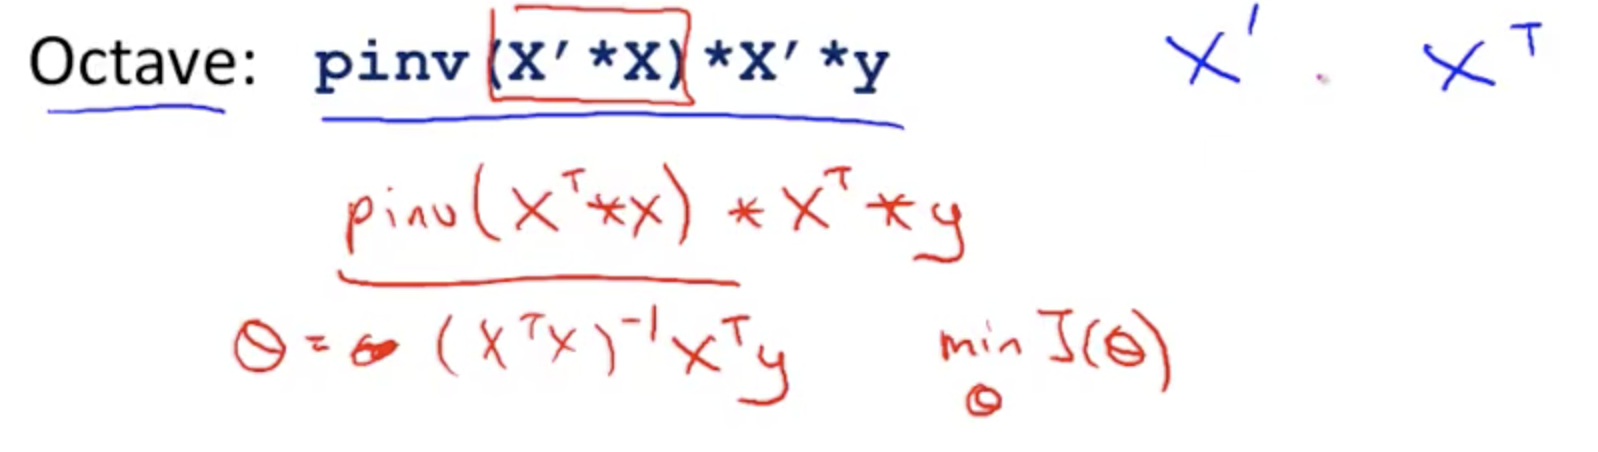 Octave: pinv(X'*X)*X'*y X' . Xᵀ
pinv(Xᵀ*X) * Xᵀ * y
θ = (XᵀX)⁻¹Xᵀy min J(θ)
θ